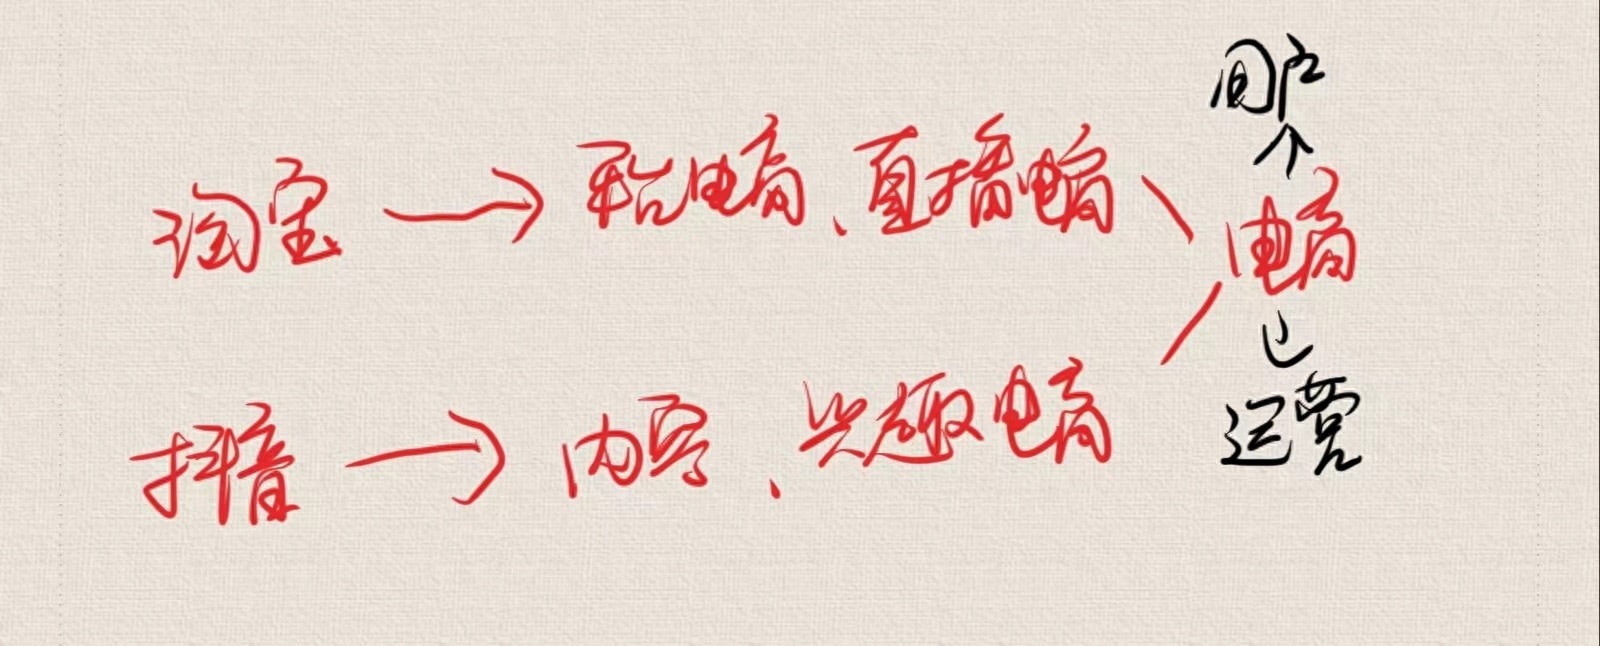 用户
↑
淘宝 → 平台电商、直播电商
电商
抖音 → 内容、兴趣电商
运营